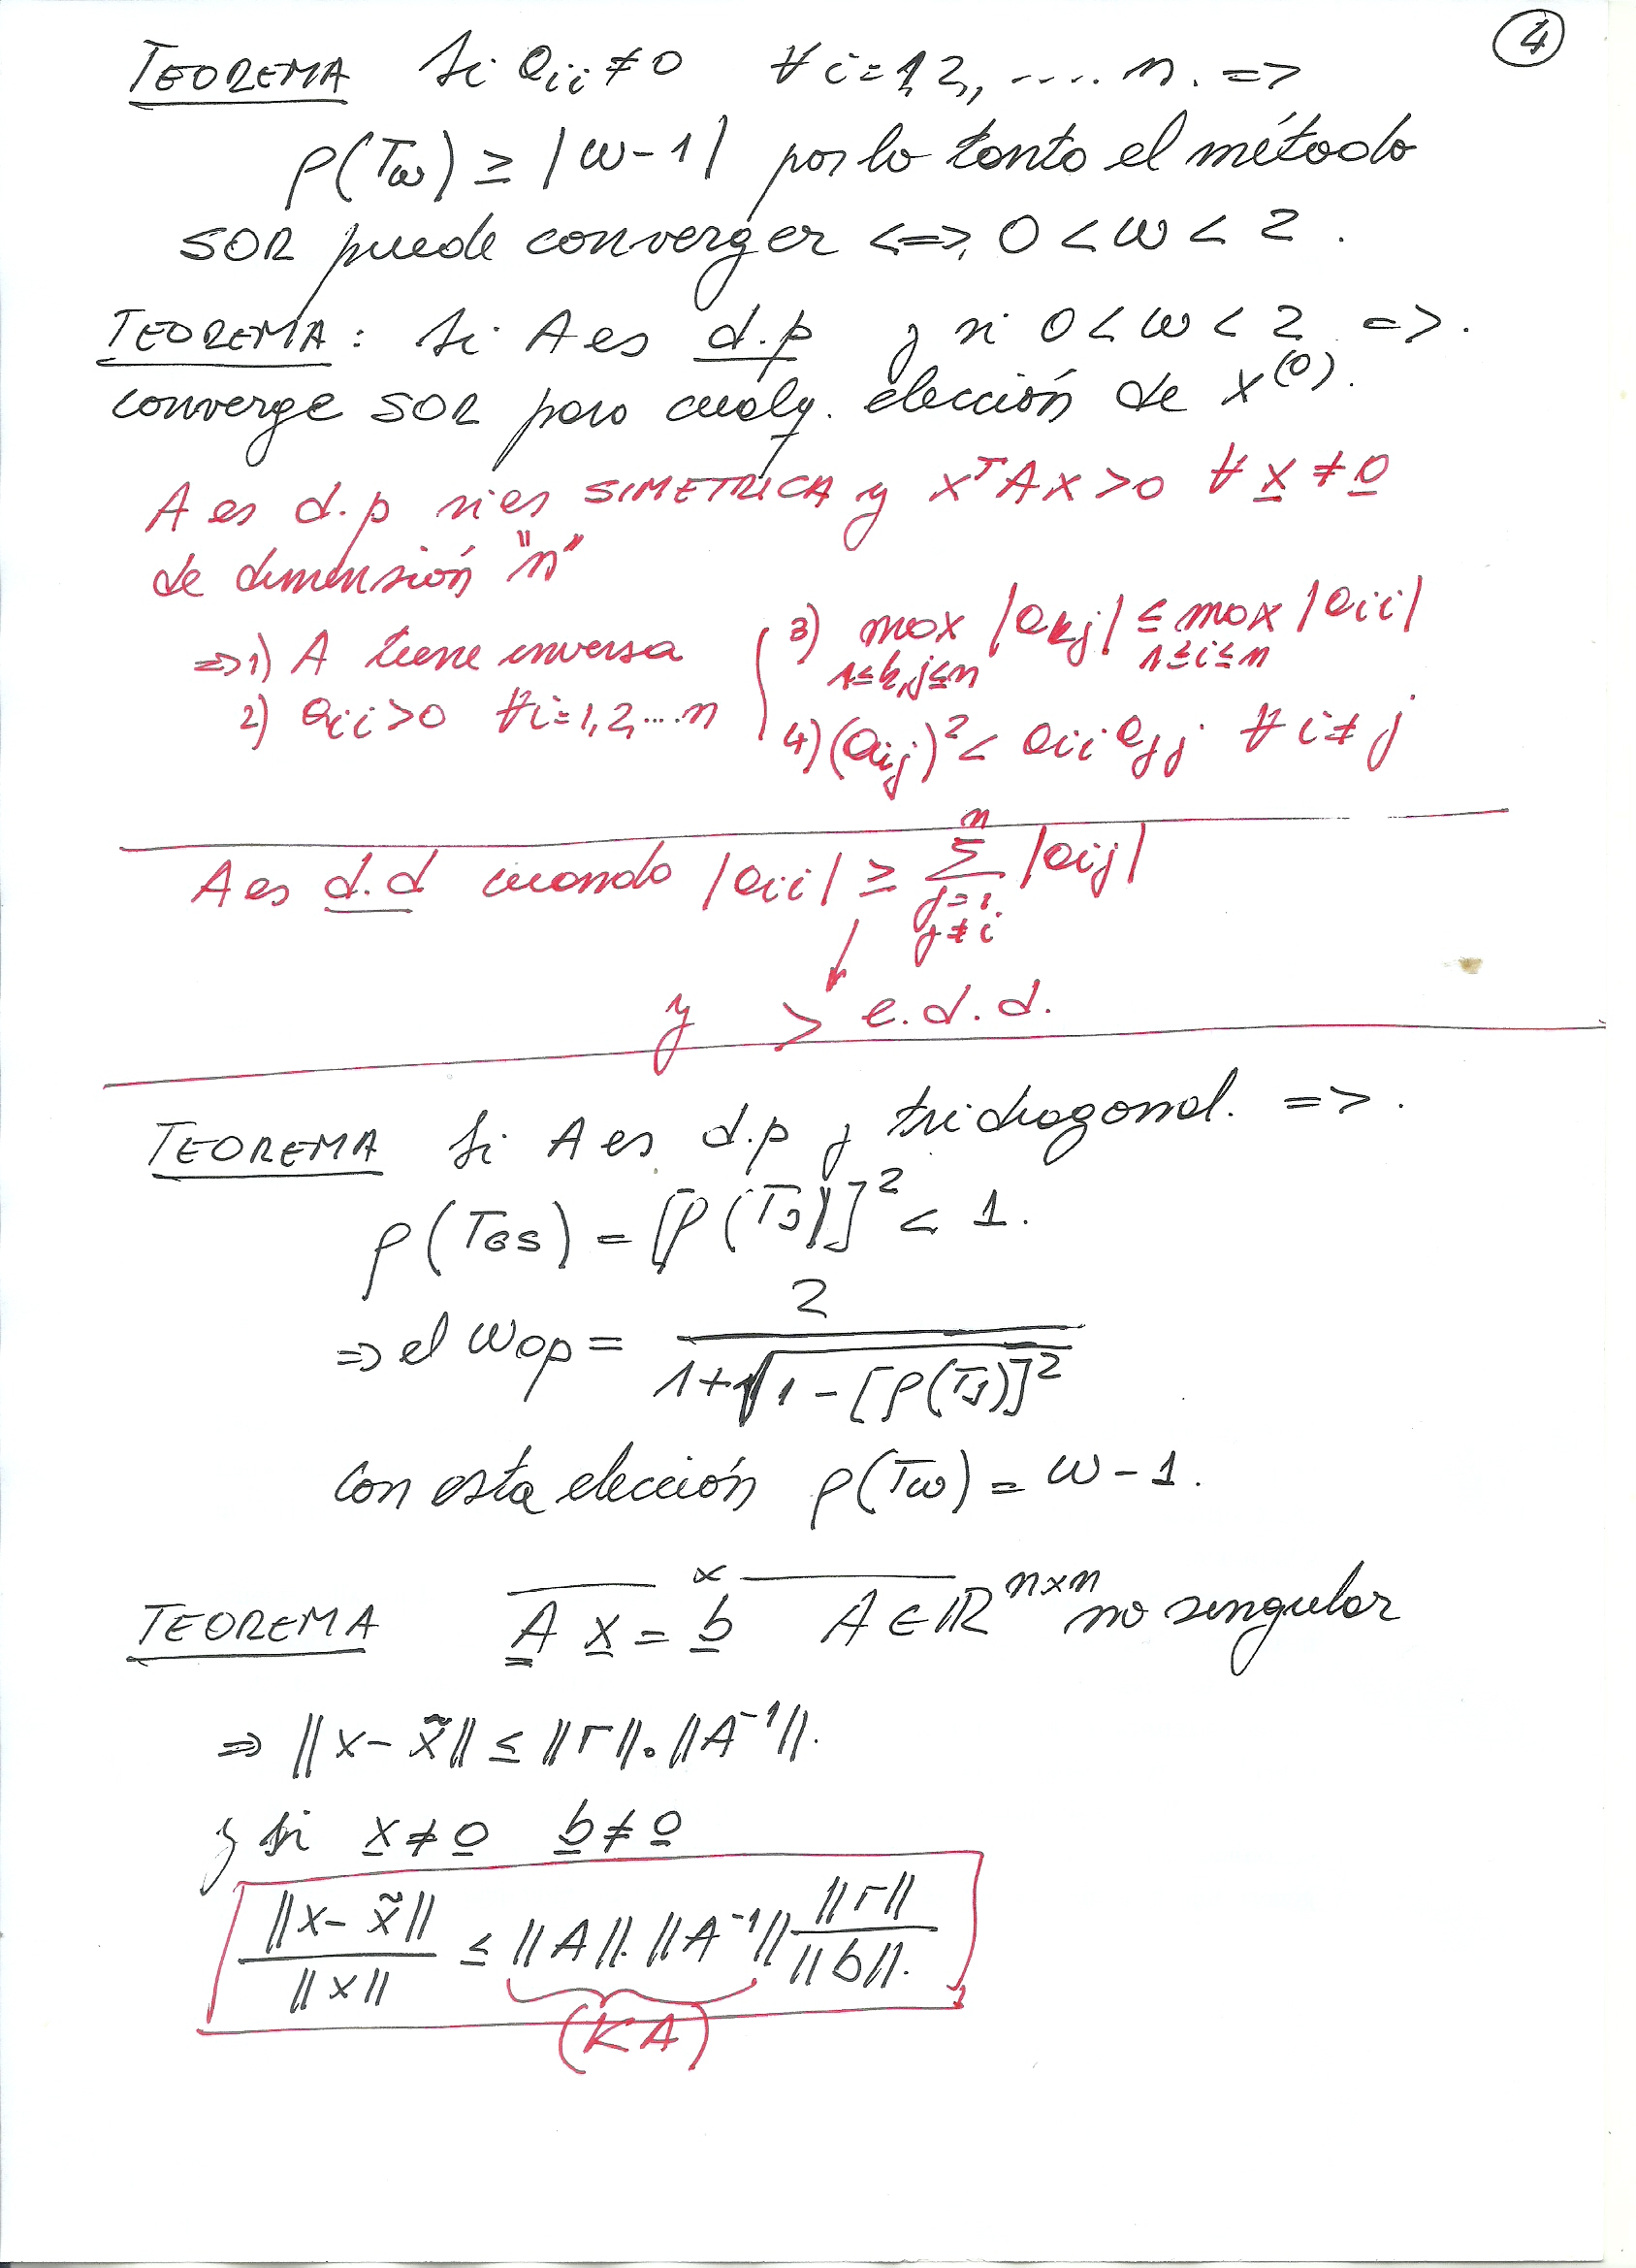 4
TEOREMA Si aii ≠ 0 ∀ i = 1, 2, .... n. =>
ρ(Tω) ≥ |ω-1| por lo tanto el método
SOR puede converger <=> 0 < ω < 2.
TEOREMA: Si A es d.p y si 0 < ω < 2 =>.
converge SOR para cualq. elección de x⁽⁰⁾.
A es d.p si es SIMETRICA y xᵀAx > 0 ∀ x ≠ 0
de dimensión "n"
=> 1) A tiene inversa
2) aii > 0 ∀ i = 1, 2, .... n
3) max |akj| ≤ max |aii|
1≤k,j≤n 1≤i≤n
4) (aij)² < aii ajj ∀ i ≠ j
A es d.d cuando |aii| ≥ n Σ j=1 j≠i |aij|
y > e.d.d.
TEOREMA Si A es d.p y tridiagonal. =>.
ρ(TGS) = [ρ(TJ)]² < 1.
=> el ωop = 2 / (1+√(1-[ρ(TJ)]²))
con esta elección ρ(Tω) = ω - 1.
TEOREMA A x = b A ∈ ℝⁿˣⁿ no singular
=> ||x - x̃|| ≤ ||r|| . ||A⁻¹||.
y si x ≠ 0 b ≠ 0
||x - x̃|| / ||x|| ≤ ||A||. ||A⁻¹|| ||r|| / ||b||.
(KA)